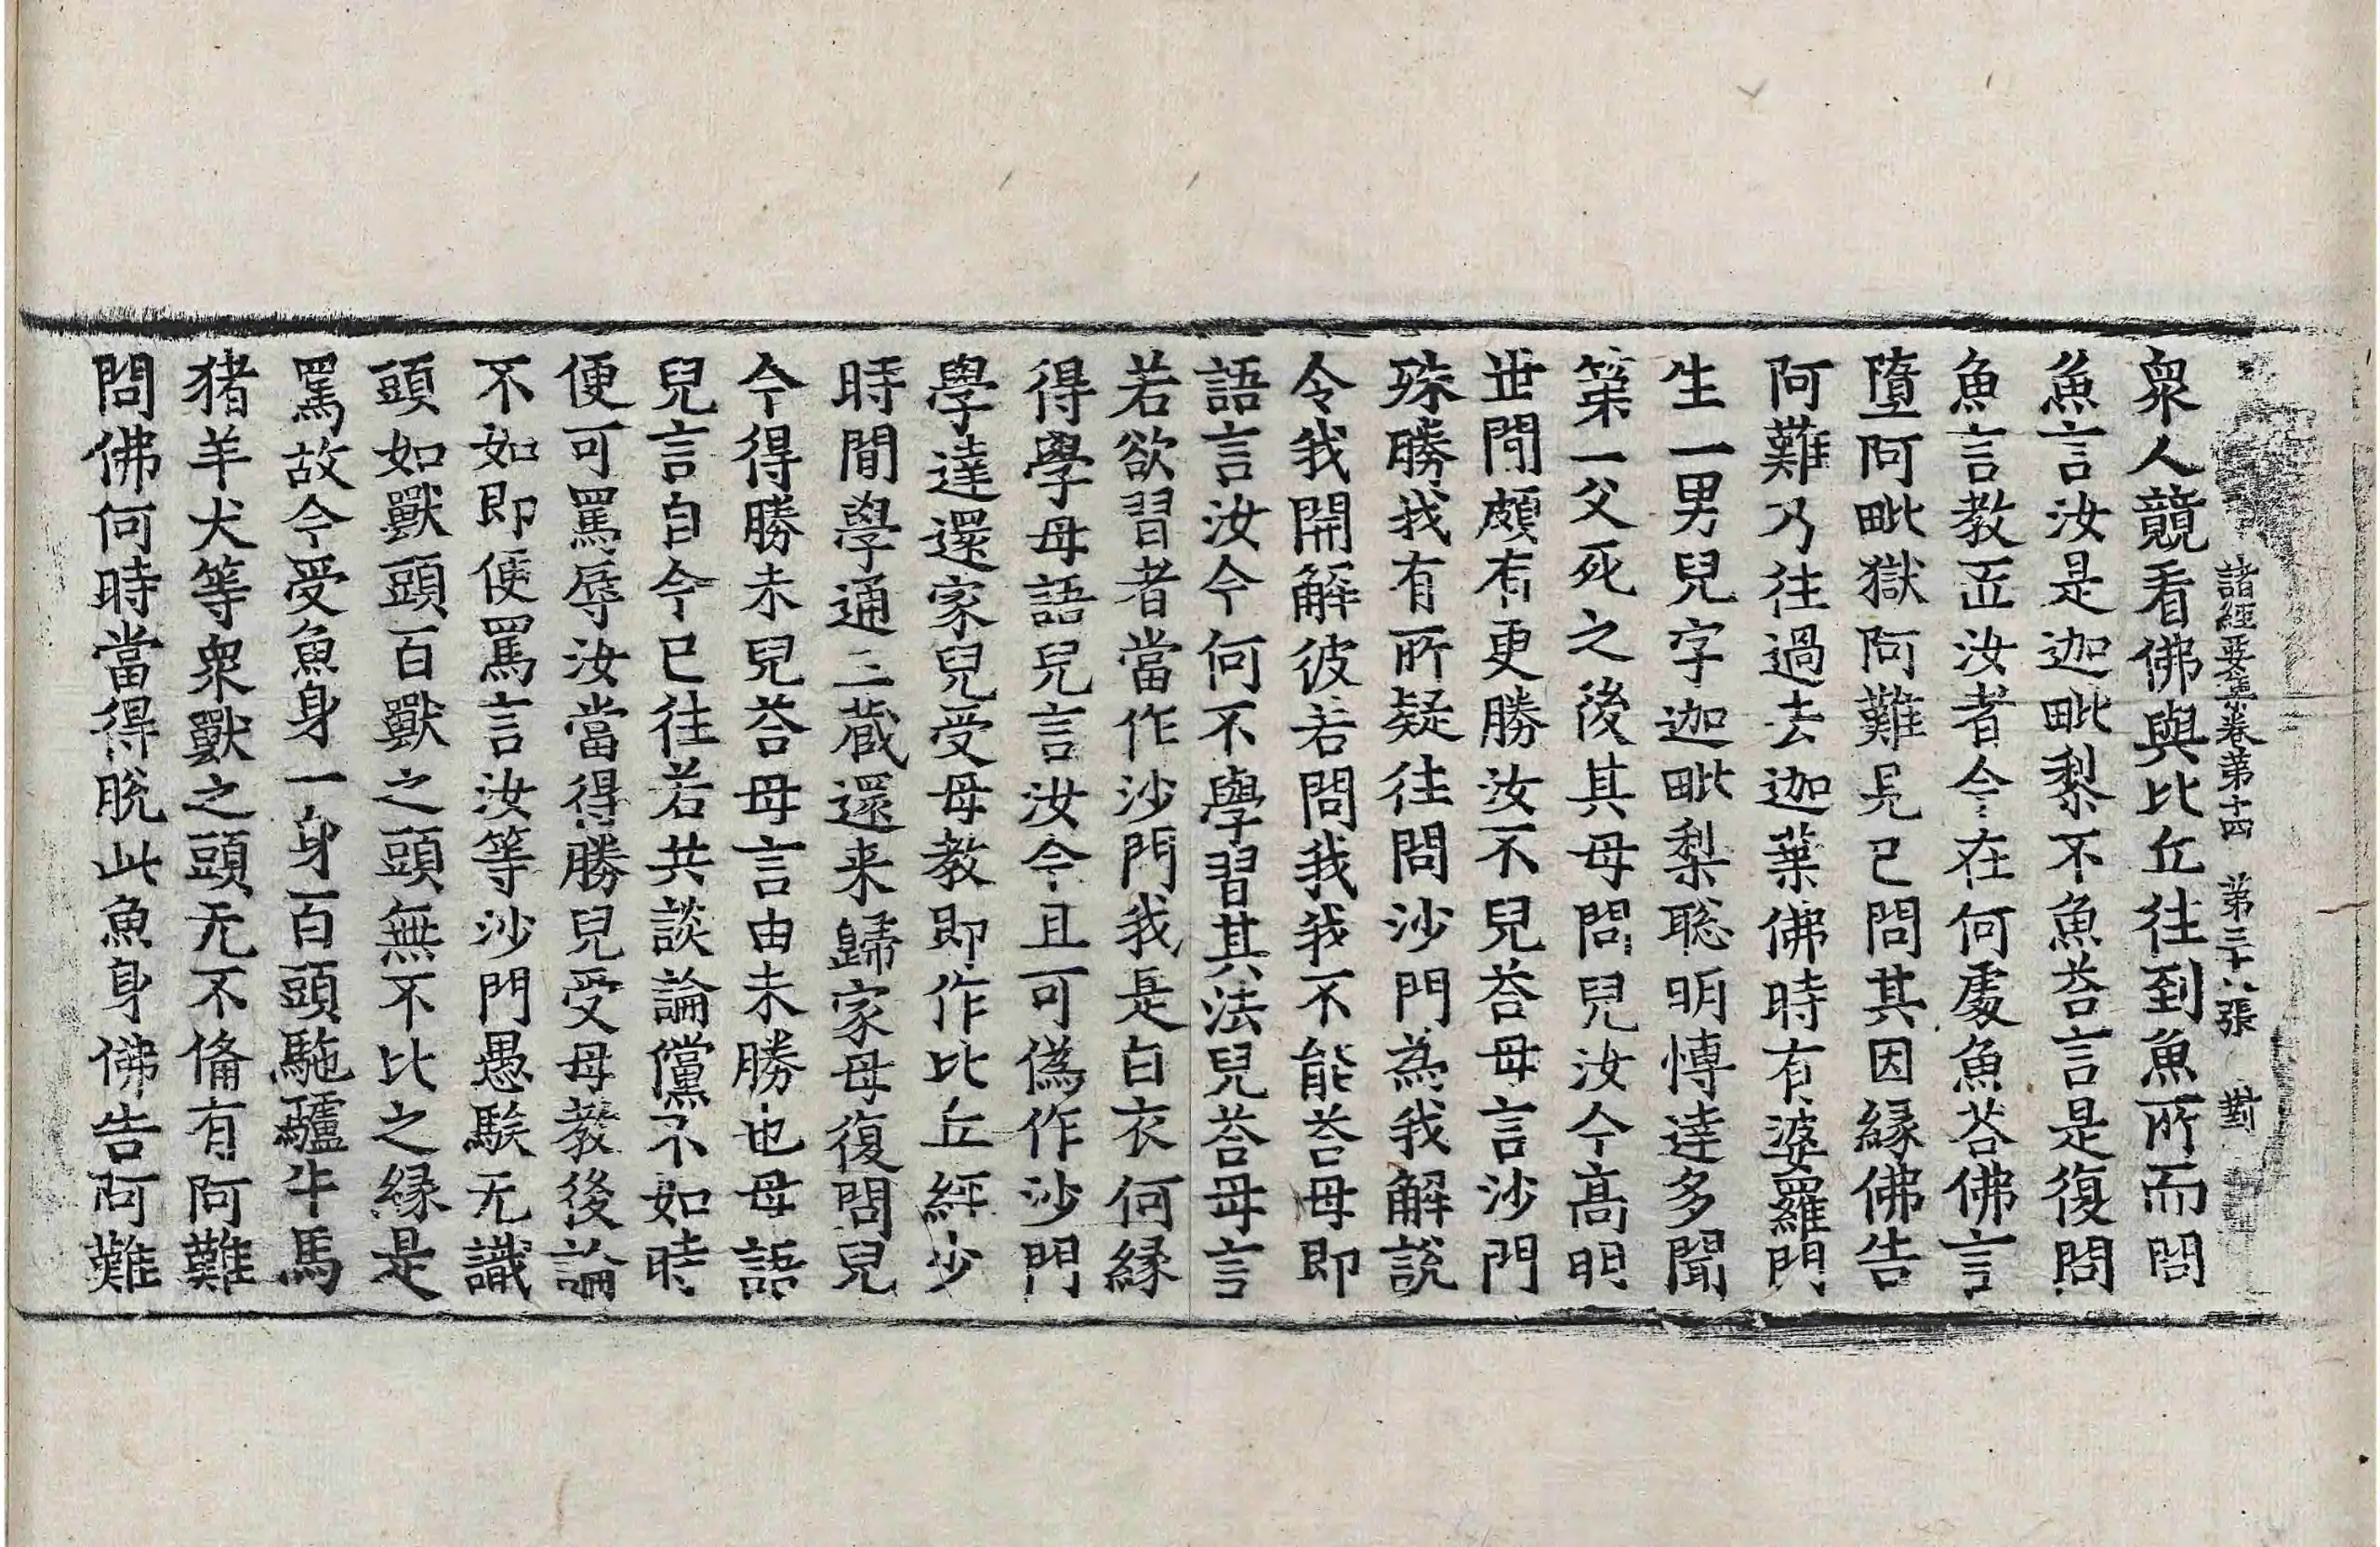 諸經要集卷第十四　第三十八張　對
衆人競看佛與比丘往到魚所而問
魚言汝是迦毗梨不魚荅言是復問
魚言教𠫵汝者今在何處魚荅佛言
墮阿毗獄阿難見已問其因緣佛告
阿難乃往過去迦葉佛時有婆羅門
生一男兒字迦毗梨聡明博達多聞
第一父死之後其母問兒汝今高明
世閒頗有更勝汝不兒荅母言沙門
殊勝我有所疑往問沙門為我解說
令我開解彼若問我我不能荅母即
語言汝今何不學習其法兒荅母言
若欲習者當作沙門我是白衣何緣
得學母語兒言汝今且可偽作沙門
學達還家兒受母教即作比丘經少
時閒學通三藏還来歸家母復問兒
今得勝未兒荅母言由未勝也母語
兒言自今已往若共談論儻不如時
便可罵辱汝當得勝兒受母教後論
不如即便罵言汝等沙門愚騃无識
頭如獸頭百獸之頭無不比之緣是
罵故今受魚身一身百頭駞驢牛馬
猪羊犬等衆獸之頭无不俻有阿難
問佛何時當得脫此魚身佛告阿難